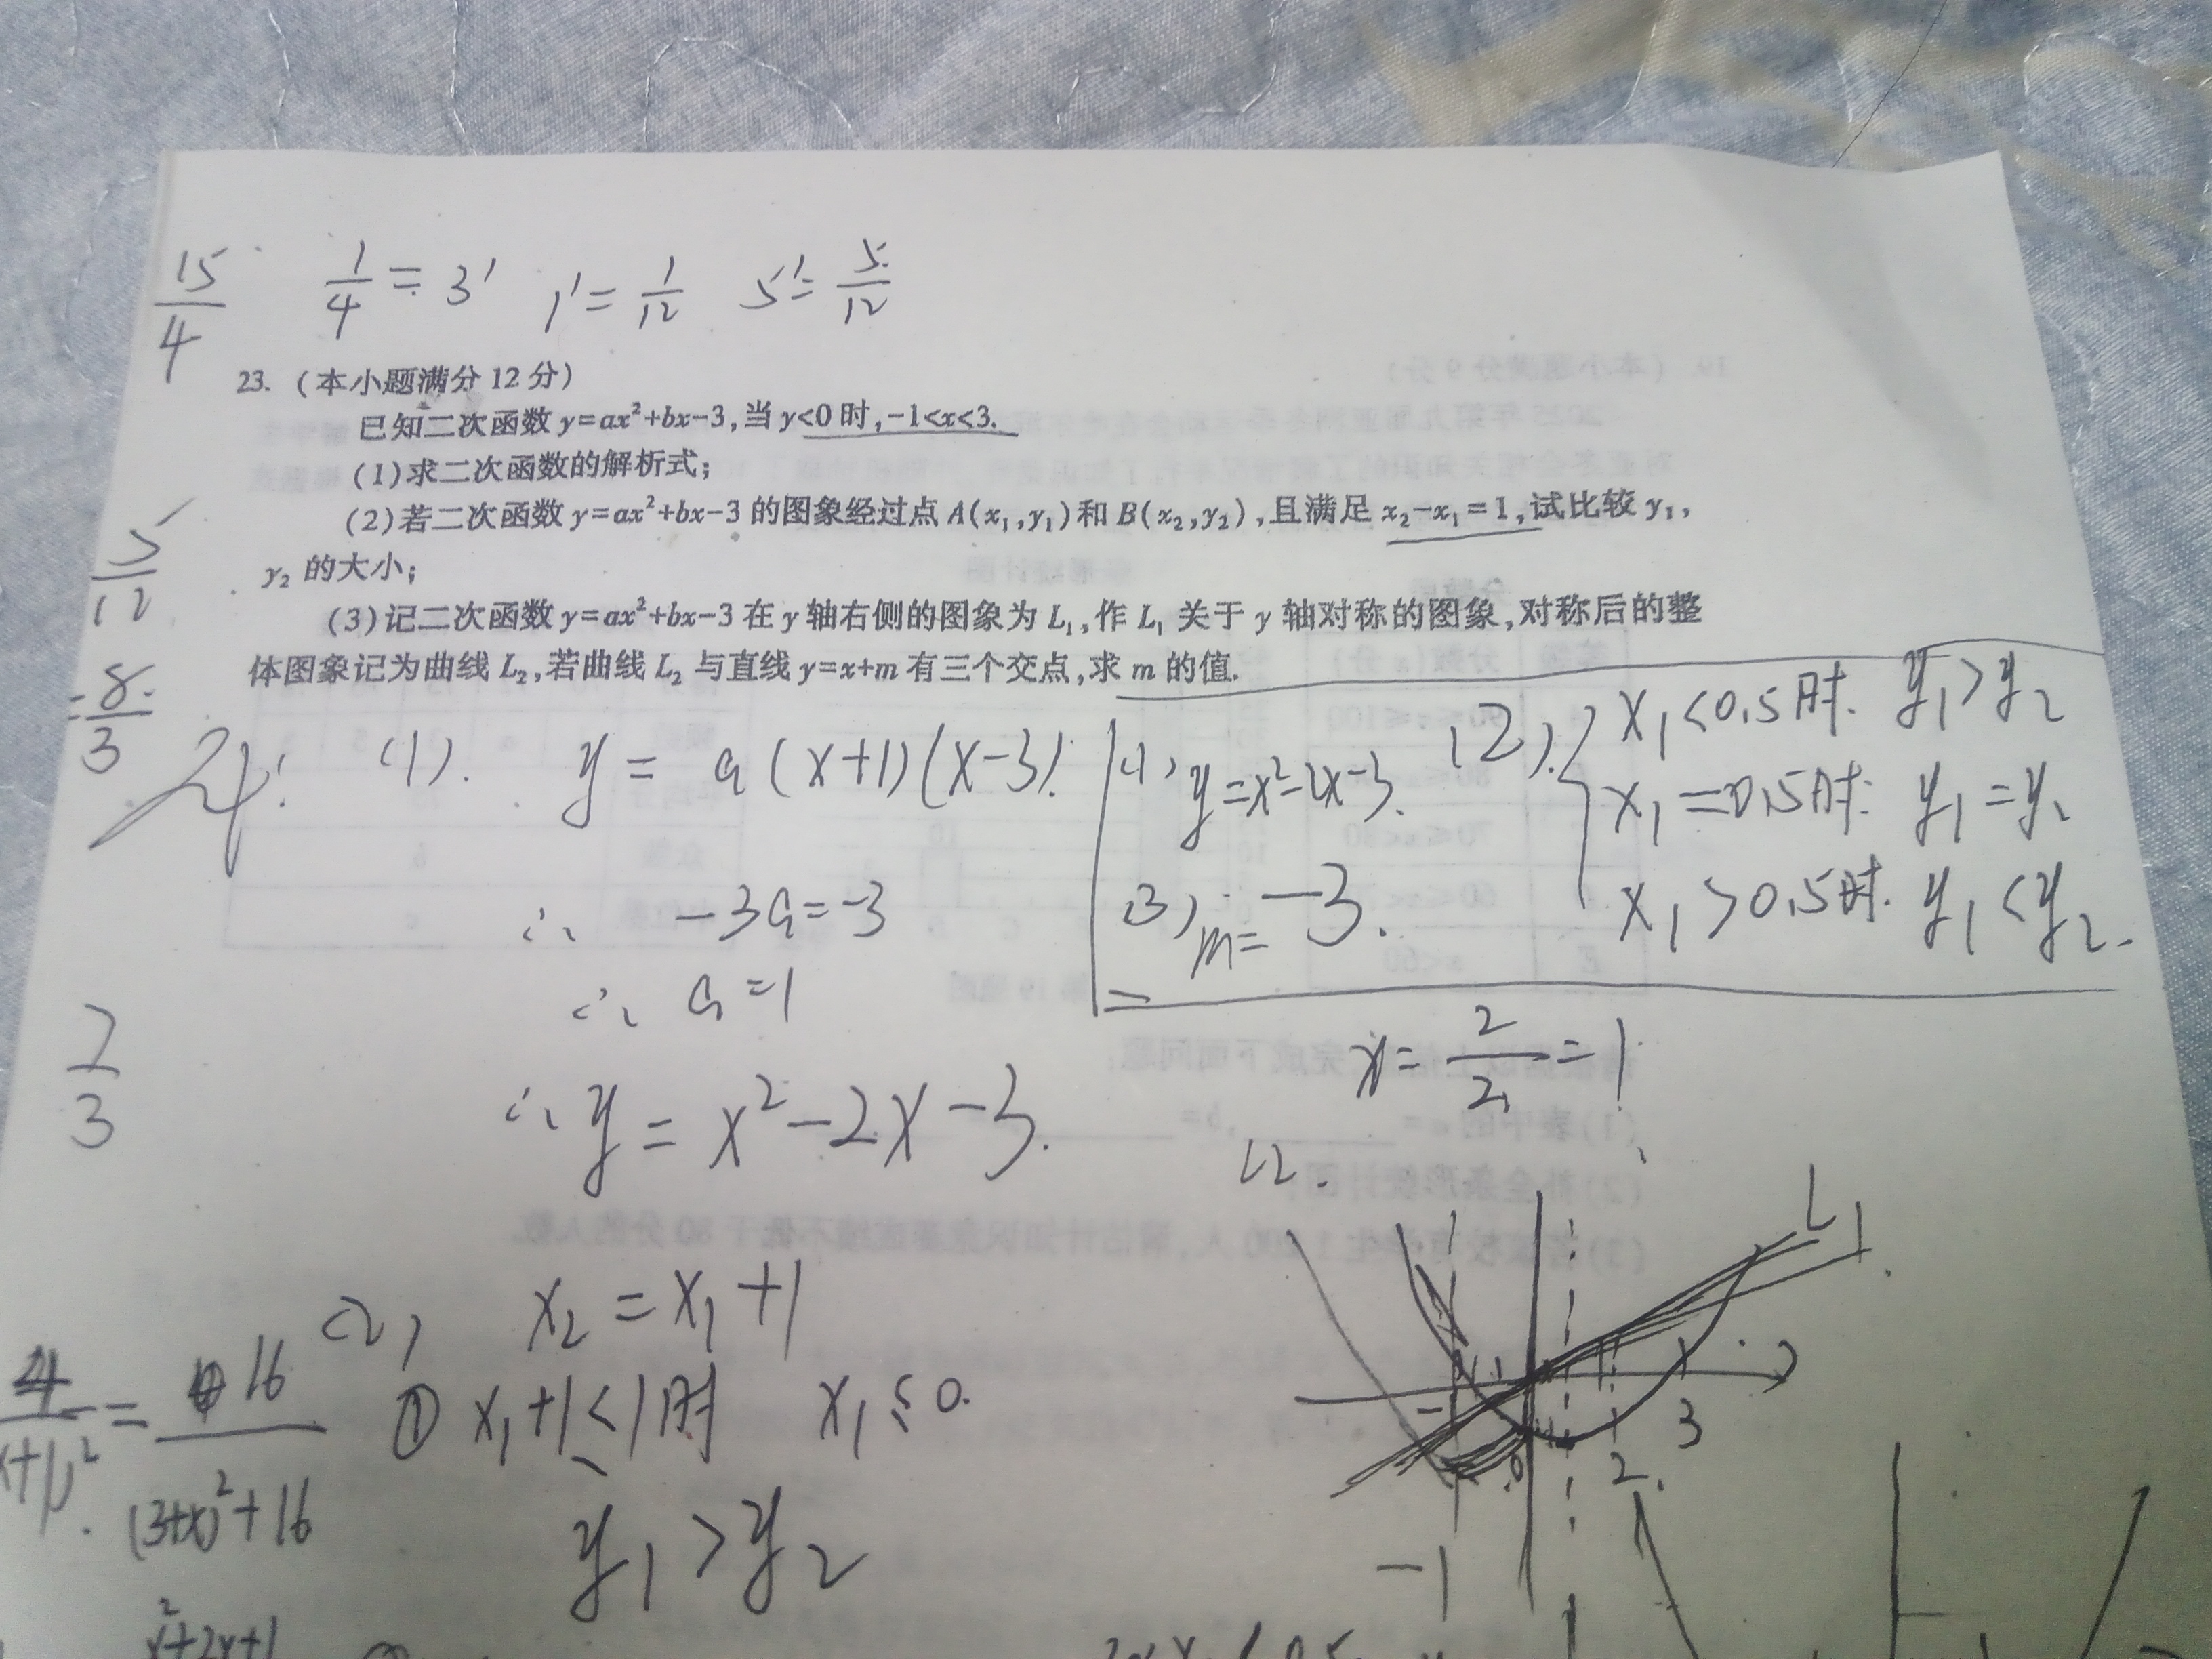 15/4 1/4=3' 1'=1/12 5'=5/12
23. (本小题满分12分)
已知二次函数y=ax²+bx-3,当y<0时,-1<x<3.
(1)求二次函数的解析式;
(2)若二次函数y=ax²+bx-3的图象经过点A(x₁,y₁)和B(x₂,y₂),且满足x₂-x₁=1,试比较y₁,
y₂的大小;
(3)记二次函数y=ax²+bx-3在y轴右侧的图象为L₁,作L₁关于y轴对称的图象,对称后的整
体图象记为曲线L₂,若曲线L₂与直线y=x+m有三个交点,求m的值.
5/12
-8/3
2/3
(1). y=a(x+1)(x-3).
∴ -3a=-3
∴ a=1
∴ y=x²-2x-3.
(1) y=x²-2x-3.
(2).{ x₁<0.5时. y₁>y₂
x₁=0.5时. y₁=y₂
x₁>0.5时. y₁<y₂.
(3) m=-3.
x=2/2=1.
L2.
L1.
-1
0
2.
3
(2) x₂=x₁+1
① x₁+1≤1时 x₁≤0.
y₁>y₂
16/((3+x)²+16)
x²+2x+1